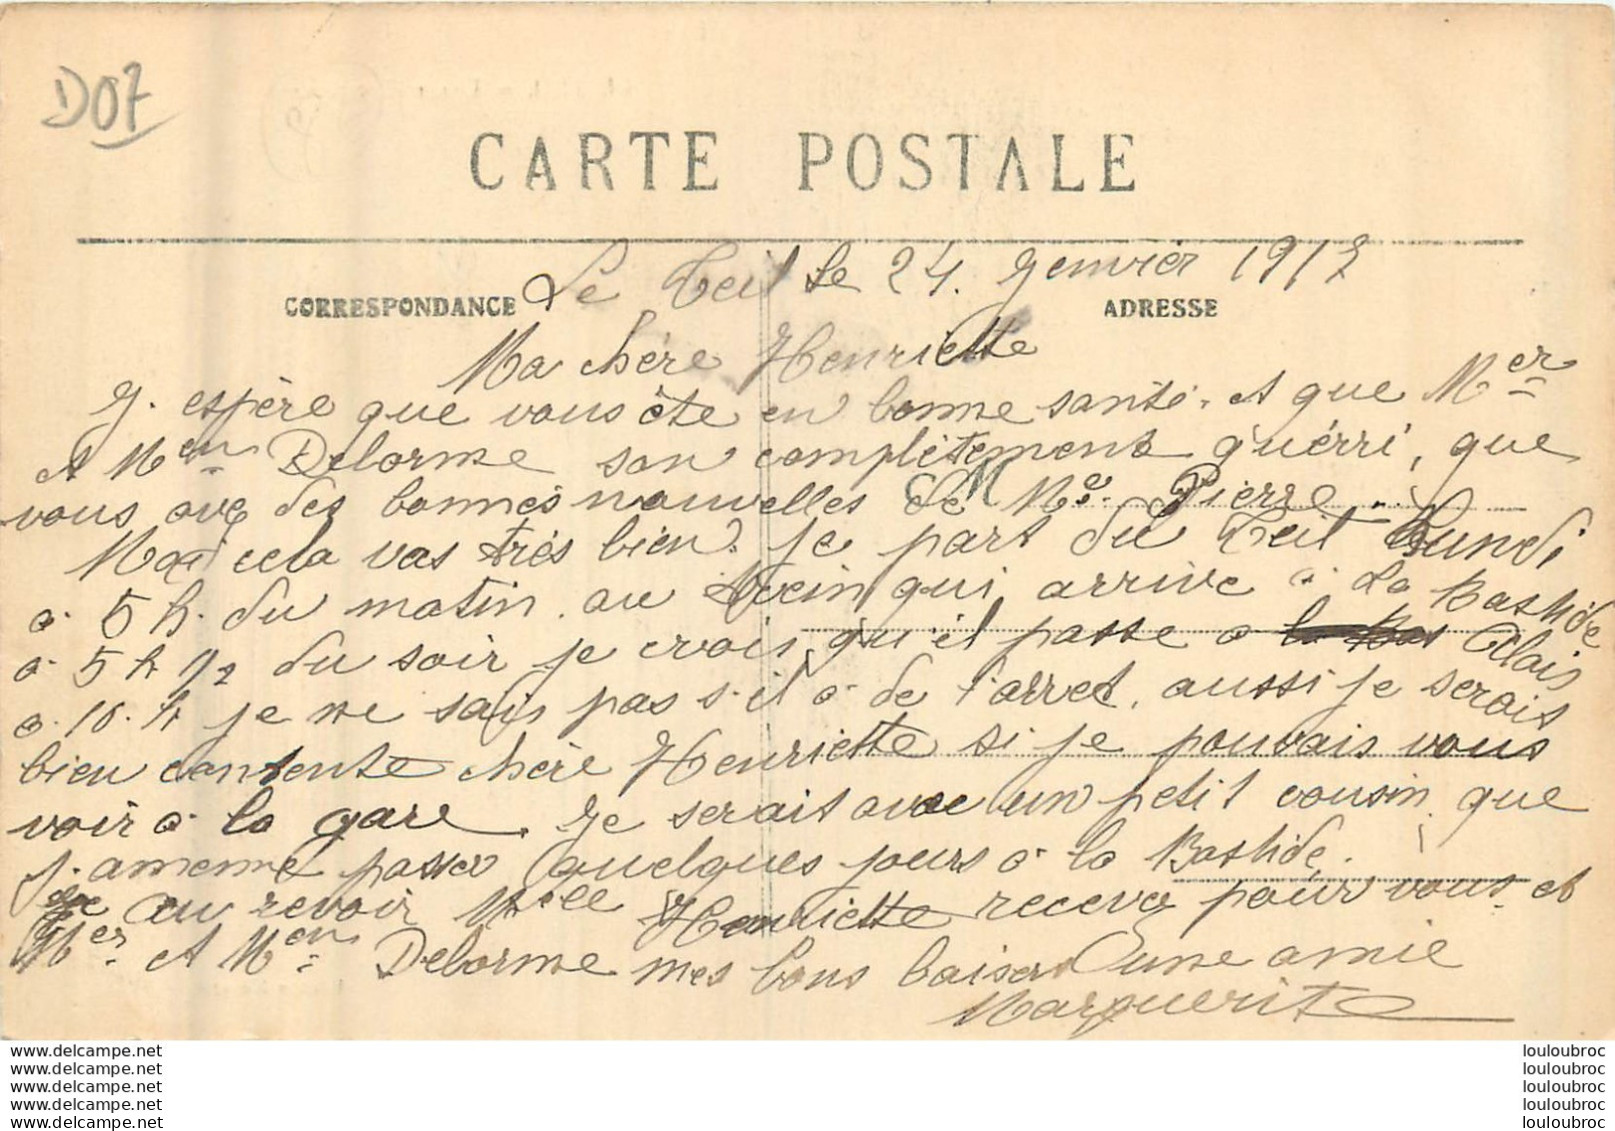 D07
CARTE POSTALE
CORRESPONDANCE
ADRESSE
Le Teil le 24. Genvier 1912
Ma chère Henriette
J. espère que vous ète en bonne santé. et que Mer
et Men Delorme son complètement guérri, que
vous avez des bonnes nouvelles de Me. Pierre
Moi cela vas très bien. je part du Teil Lundi
a 5 h. du matin. au trein qui arrive a La Bastide
a 5 h 1/2 du soir je crois qu'il passe a Alais
a 10. h je ne sais pas s'il a de l'arret. aussi je serais
bien contente chère Henriette si je pouvais vous
voir a la gare. je serait avec un petit cousin que
j. amenne passer quelques jours a la Bastide.
au revoir Melle Henriette recevez pour vous et
Mer et Men Delorme mes bons baisers d'une amie
Marguerite
www.delcampe.net
www.delcampe.net
www.delcampe.net
www.delcampe.net
www.delcampe.net
louloubroc
louloubroc
louloubroc
louloubroc
louloubroc